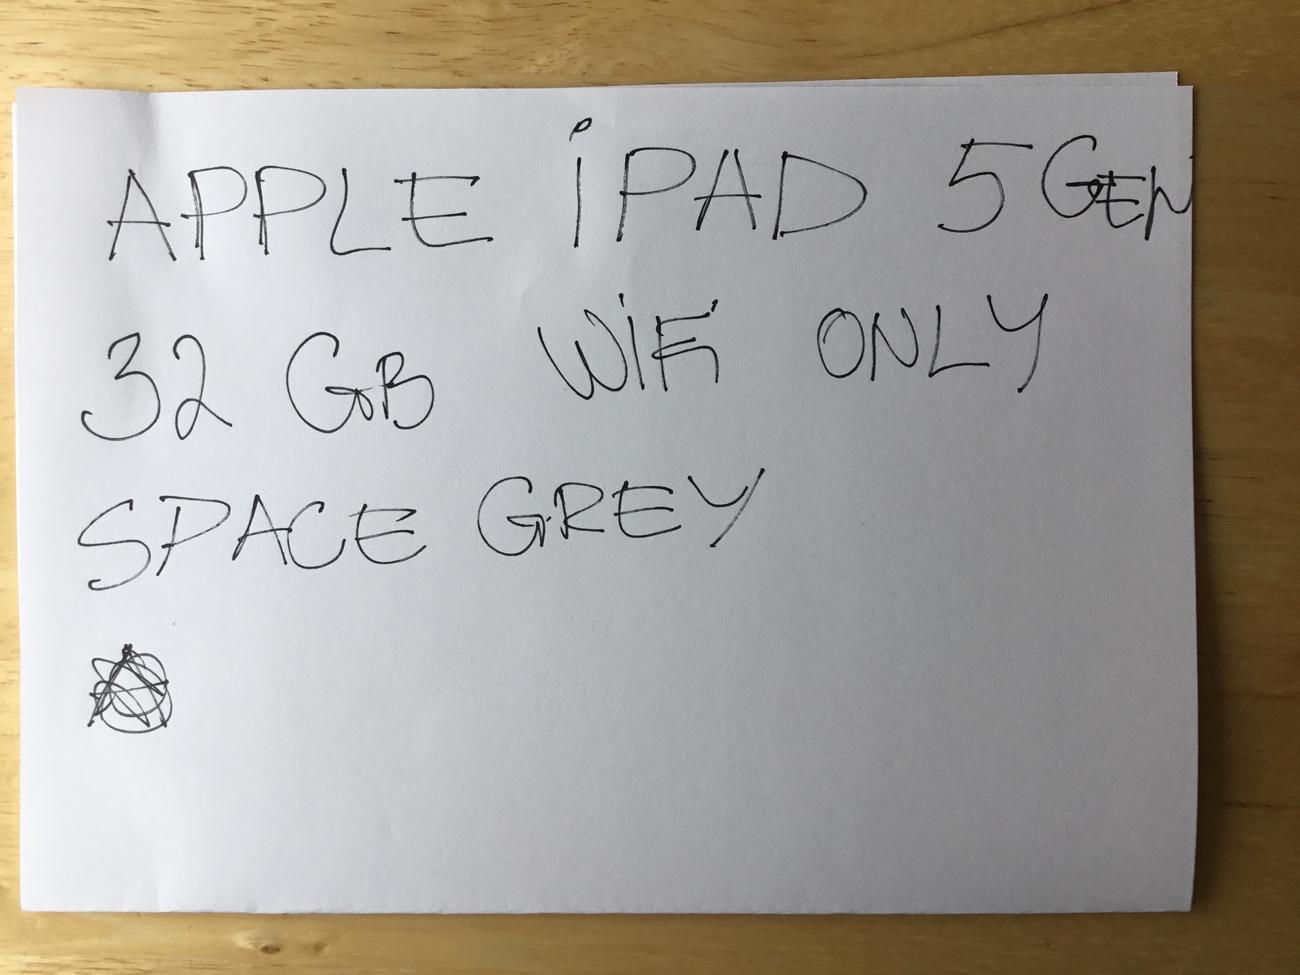 APPLE iPAD 5 GEN
32 GB WiFi ONLY
SPACE GREY